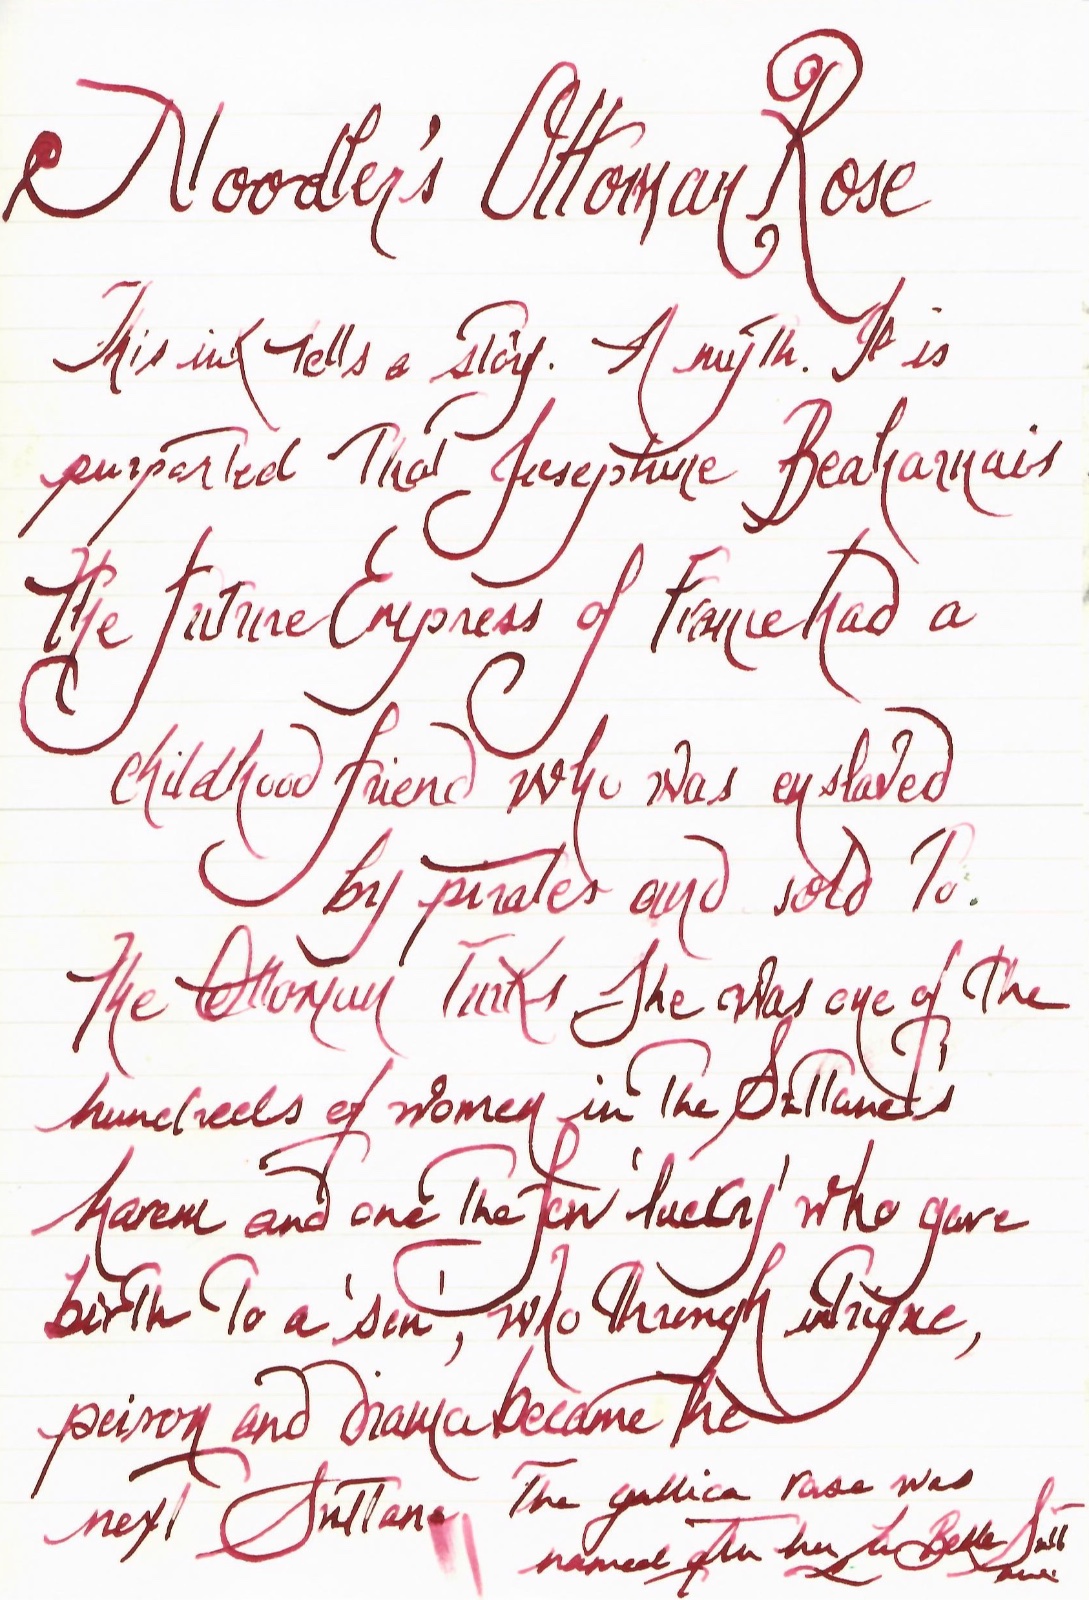 Noodler's Ottoman Rose
This ink tells a story. A myth. It is
purported that Josephine Beaharnais
the future Empress of France had a
childhood friend who was enslaved
by pirates and sold to.
the Ottoman Turks She was one of the
hundreds of women in the Sultane's
harem and one the few 'lucky' who gave
birth to a 'son', who through intrigue,
poison and drama became the
next Sultane
The gallica rose was
named after her La Belle Sult